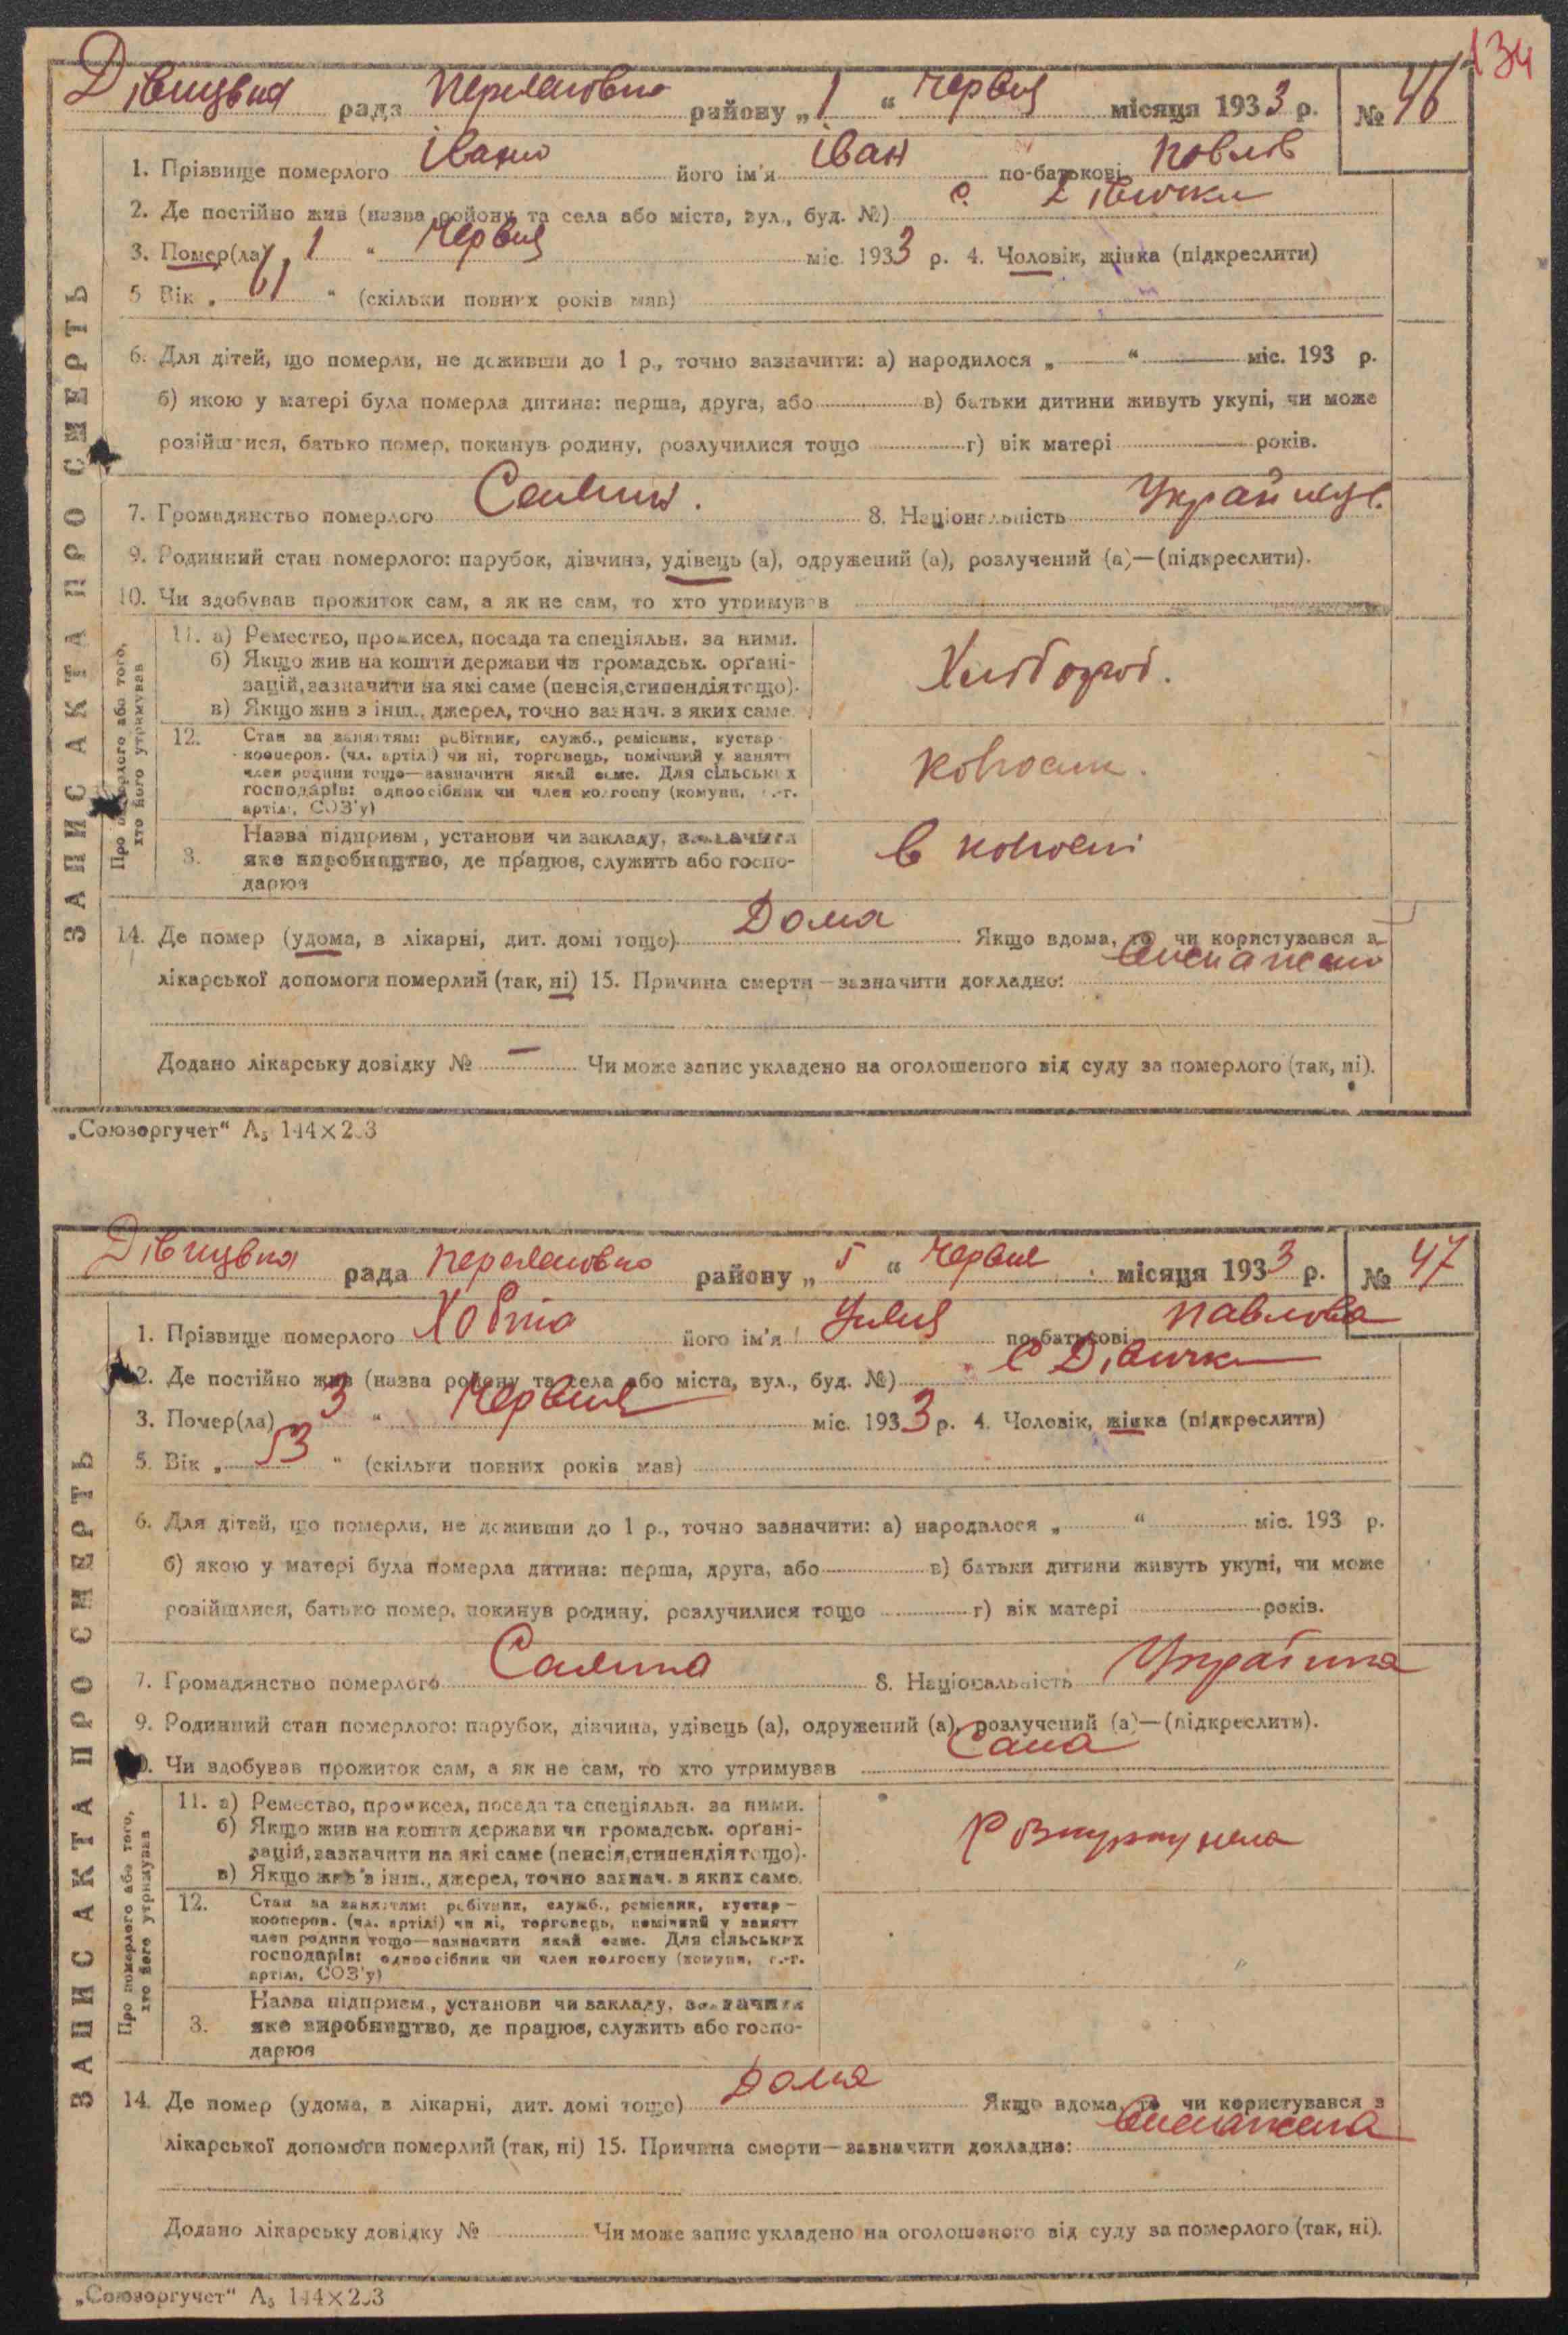 134
Дівицька рада Переяславського району „ 1 “ Червня місяця 1933 р. № 46
ЗАПИС АКТА ПРО СМЕРТЬ
1. Прізвище померлого його ім'я Іван по-батькові Павлов
2. Де постійно жив (назва району та села або міста, вул., буд. №) с. Дівички
3. Помер(ла) „ 1 “ Червня міс. 1933 р. 4. Чоловік, жінка (підкреслити)
5 Вік „ 61 “ (скільки повних років мав)
6. Для дітей, що померли, не доживши до 1 р., точно зазначити: а) народилося „ “ міс. 193 р.
б) якою у матері була померла дитина: перша, друга, або в) батьки дитини живуть укупі, чи може
розійшлися, батько помер, покинув родину, розлучилися тощо г) вік матері років.
7. Громадянство померлого 8. Національність
9. Родинний стан померлого: парубок, дівчина, удівець (а), одружений (а), розлучений (а)—(підкреслити).
10. Чи здобував прожиток сам, а як не сам, то хто утримував
Про померлого або того,
хто його утримував
11. а) Ремество, промисел, посада та спеціяльн. за ними.
б) Якщо жив на кошти держави чи громадськ. орґані-
зацій, зазначити на які саме (пенсія, стипендія тощо).
в) Якщо жив з інш., джерел, точно зазнач. з яких саме.
Хлібороб.
12. Стан за заняттям: робітник, служб., ремісник, кустар-
кооперов. (чл. артілі) чи ні, торговець, помічний у занятт
член родини тощо—зазначити який саме. Для сільських
господарів: одноосібник чи член колгоспу (комуни, с.-г.
артілі, СОЗ'у)
колгосп.
3. Назва підприєм., установи чи закладу, зазначити
яке виробництво, де працює, служить або госпо-
дарює
в колгоспі
14. Де помер (удома, в лікарні, дит. домі тощо) Дома Якщо вдома, то чи користувався з
лікарської допомоги померлий (так, ні) 15. Причина смерти—зазначити докладно:
Додано лікарську довідку № — Чи може запис укладено на оголошеного від суду за померлого (так, ні).
„Союзоргучет“ А₅ 144×203
Дівицька рада Переяславського району „ 5 “ Червня місяця 1933 р. № 47
ЗАПИС АКТА ПРО СМЕРТЬ
1. Прізвище померлого Ховта його ім'я по-батькові Павлова
2. Де постійно жив (назва району та села або міста, вул., буд. №) с Дівички
3. Помер(ла) 3 “ Червня міс. 1933 р. 4. Чоловік, жінка (підкреслити)
5. Вік „ 53 “ (скільки повних років мав)
6. Для дітей, що померли, не доживши до 1 р., точно зазначити: а) народилося „ “ міс. 193 р.
б) якою у матері була померла дитина: перша, друга, або в) батьки дитини живуть укупі, чи може
розійшлися, батько помер, покинув родину, розлучилися тощо г) вік матері років.
7. Громадянство померлого 8. Національність Українка
9. Родинний стан померлого: парубок, дівчина, удівець (а), одружений (а), розлучений (а)—(підкреслити).
10. Чи здобував прожиток сам, а як не сам, то хто утримував Сама
Про померлого або того,
хто його утримував
11. а) Ремество, промисел, посада та спеціяльн. за ними.
б) Якщо жив на кошти держави чи громадськ. орґані-
зацій, зазначити на які саме (пенсія, стипендія тощо).
в) Якщо жив з інш., джерел, точно зазнач. з яких саме.
12. Стан за заняттям: робітник, служб., ремісник, кустар—
кооперов. (чл. артілі) чи ні, торговець, помічний у занятт
член родини тощо—зазначити який саме. Для сільських
господарів: одноосібник чи член колгоспу (комуни, с.-г.
артілі, СОЗ'у)
3. Назва підприєм., установи чи закладу, зазначити
яке виробництво, де працює, служить або госпо-
дарює
14. Де помер (удома, в лікарні, дит. домі тощо) Дома Якщо вдома, то чи користувався з
лікарської допомоги померлий (так, ні) 15. Причина смерти—зазначити докладно: Виснажена
Додано лікарську довідку № Чи може запис укладено на оголошеного від суду за померлого (так, ні).
„Союзоргучет“ А₅ 144×203